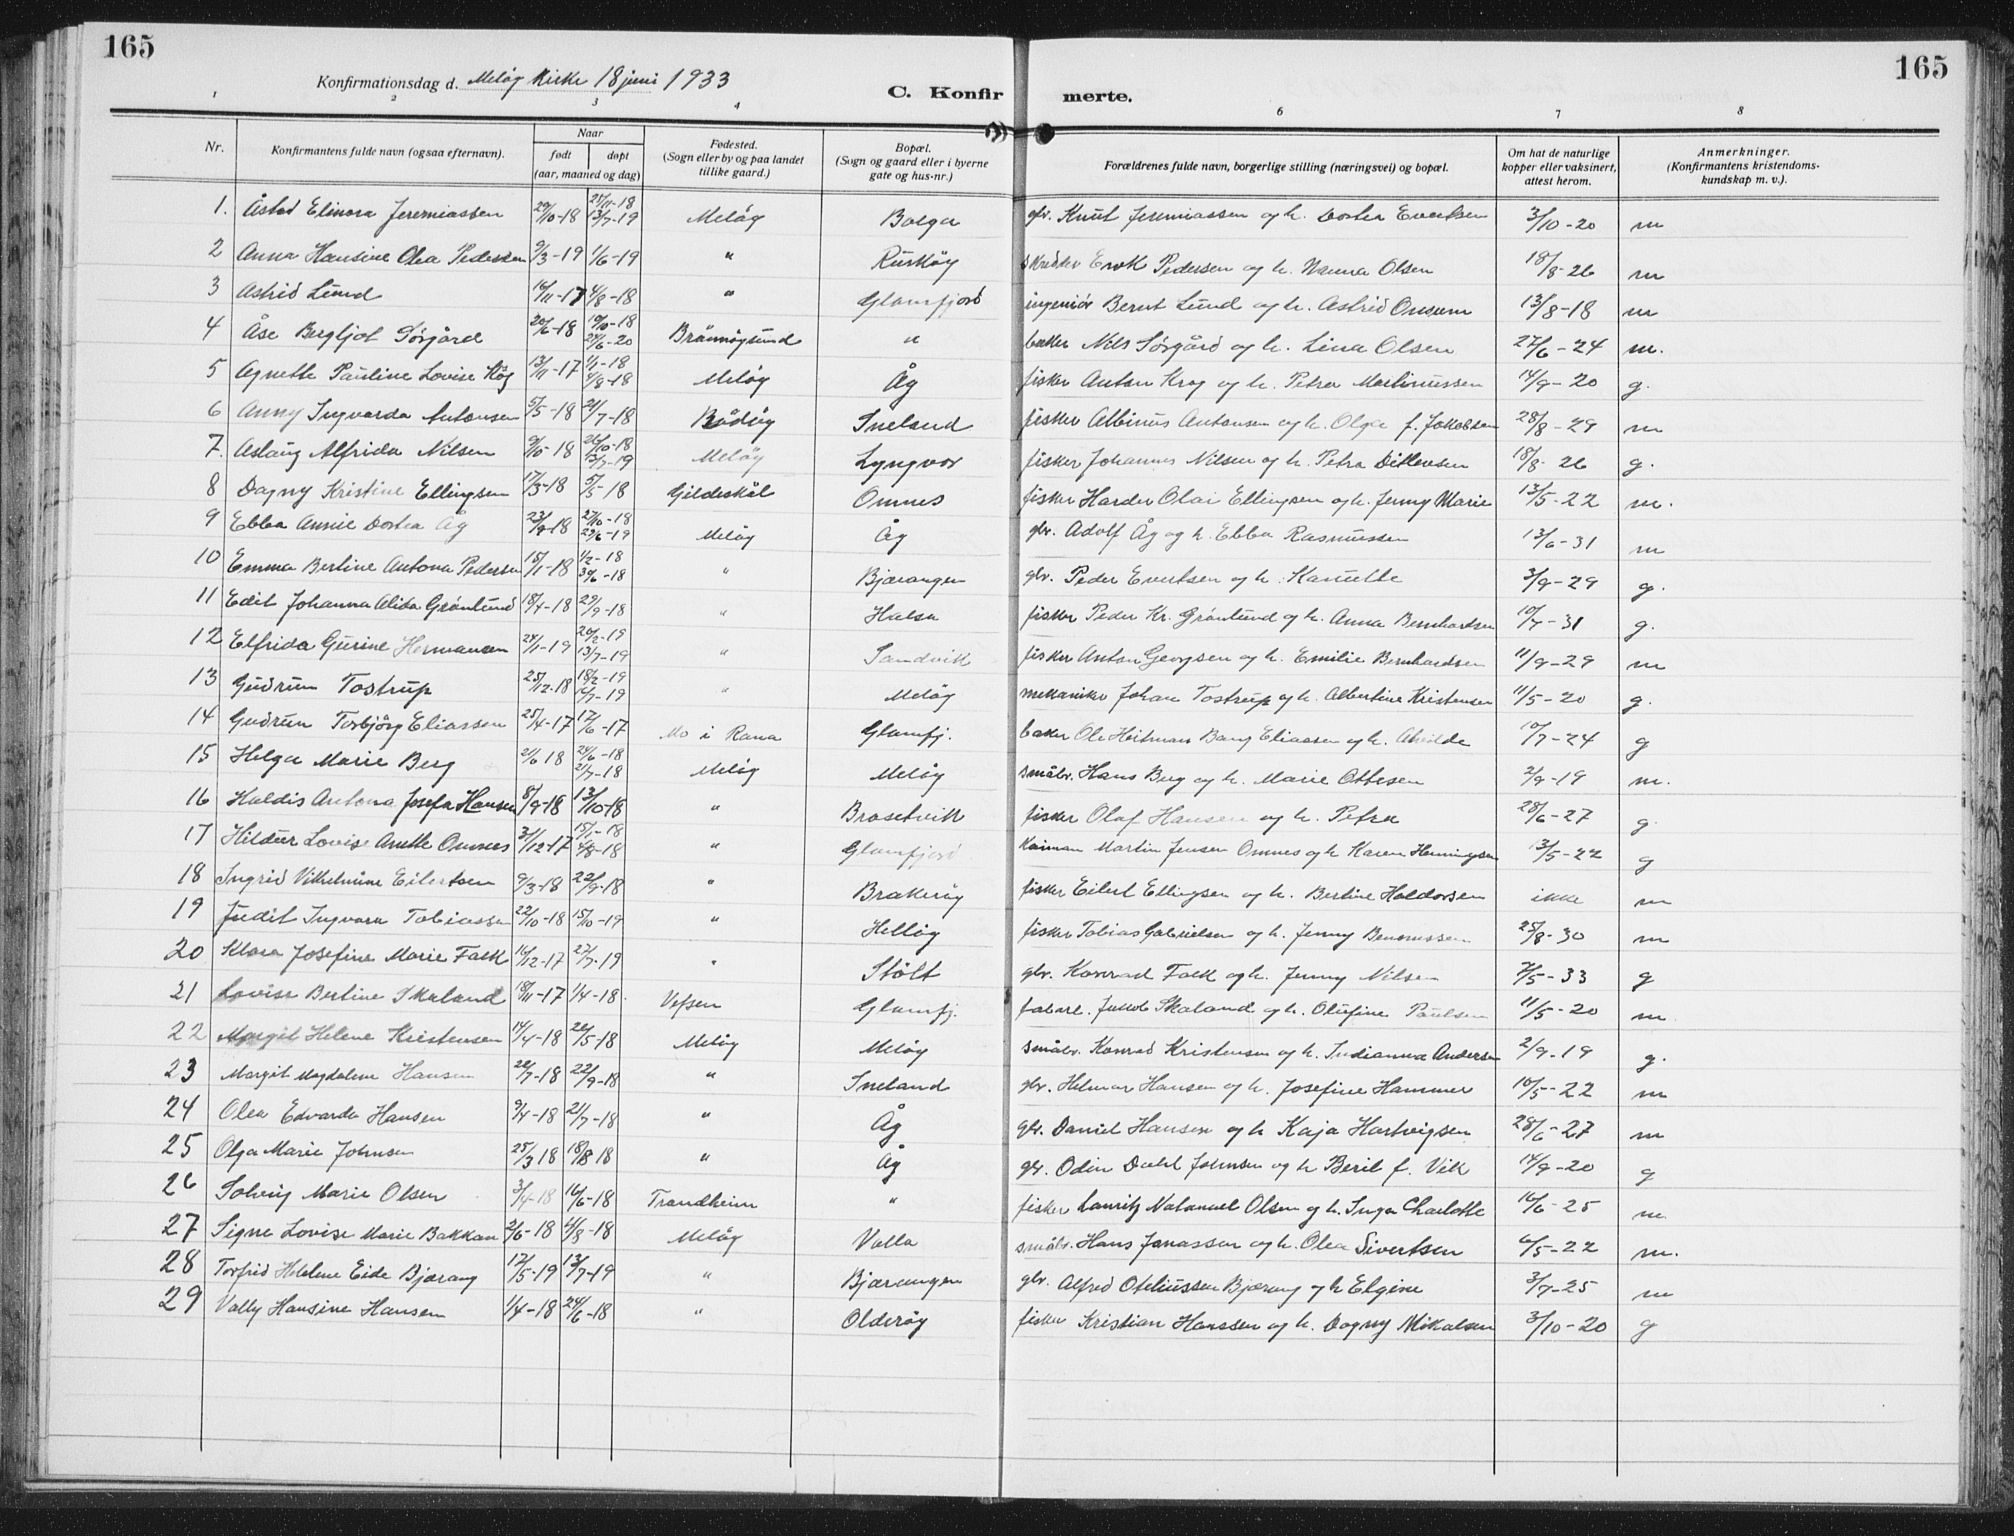 165
165
Konfirmationsdag d. Meløy Kirke 18 juni 1933
C. Konfirmerte.
1 2 3 4 6 7 8
Nr. Konfirmantens fulde navn (ogsaa efternavn). Naar født døpt (aar, maaned og dag) Fødested. (Sogn eller by og paa landet tillike gaard.) Bopæl. (Sogn og gaard eller i byerne gate og hus-nr.) Forældrenes fulde navn, borgerlige stilling (næringsvei) og bopæl. Om hat de naturlige kopper eller vaksinert, attest herom. Anmerkninger. (Konfirmantens kristendomskundskap m. v.).
1. Åstad Elinora Jeremiassen 29/10-18 25/11-18 13/7-19 Meløy Bolga gbr. Knut Jeremiassen og h. Dortea Evertsen 3/10-20 m
2 Anna Hansine Olea Pedersen 9/3-19 1/6-19 " Ruskøy Erik Pedersen og h. Nanna Olsen 18/8-26 m
3 Astrid Lund 16/11-17 4/8-18 " Glomfjord ingeniør Bernt Lund og h. Astrid Onsum 13/8-18 m
4 Åse Bergljot Sørgård 20/6-18 19/10-18 24/6-20 Brønnøysund " baker Nils Sørgård og h. Lina Olsen 27/6-24 m.
5 Agnethe Pauline Lovise 13/11-17 1/1-18 4/8-18 Meløy Åg fisker Anton Krog og h. Petra Martinussen 14/9-20 g.
6 Anny Ingvarda Antonsen 5/5-18 21/7-18 Bodøy Snelund fisker Albinus Antonsen og h. Olga f. Jakobsen 28/8-29 m
7. Aslaug Alfrida Nilsen 9/10-18 26/10-18 13/7-19 Meløy Lyngvor fisker Johannes Nilsen og h. Petra Ditlevsen 18/8-26 g.
8 Dagny Kristine Ellingsen 17/3-18 5/5-18 Gildeskål Ornes fisker Harder Olai Ellingsen og h. Jenny Marie 13/5-22 m.
9 Ebba Annie Dortea Åg 23/9-18 27/10-18 29/6-19 Meløy Åg gbr. Adolf Åg og h. Ebba Rasmussen 13/6-31 m
10 Emma Bertine Antona Pedersen 15/1-18 1/2-18 30/6-18 " Bjærangen gbr. Peder Evertsen og h. Hanette 3/9-29 g.
11 Edit Johanna Alida Grønlund 18/4-18 29/9-18 " Halsa fisker Peder Kr. Grønlund og h. Anna Bernhardsen 10/7-31 g.
12 Elfrida Gurine Hermansen 24/1-19 26/2-19 13/7-19 " Sandvik fisker Anton Georgsen og h. Emilie Bernhardsen 11/9-29 m
13 Gudrun Tostrup 25/12-18 18/2-19 14/7-19 " Meløy mekaniker Johan Tostrup og h. Albertine Kristensen 11/5-20 g.
14 Gudrun Torbjørg Eliassen 25/4-17 17/6-17 Mo i Rana Glomfj. baker Ole Heitman Bang Eliassen og h. 10/7-24 g
15 Helga Marie Berg 21/6 18 24/6-18 21/7-18 Meløy Meløy småbr. Hans Berg og h. Marie Ottesen 2/9-19 m.
16 Haldis Antona Josefa Hansen 8/9-18 13/10-18 " Brosetvik fisker Olaf Hansen og h. Petra 28/6-27 g
17 Hildur Lovise Anette Ornes 31/12-17 15/1-18 4/8-18 " Glomfjord Martin Jensen Ornes og h Karen Henningsen 13/5-22 g
18 Ingrid Vilhelmine Eilertsen 9/3-18 22/9-18 " Brakerøy fisker Eilert Ellingsen og h. Bertine Haldorsen ikke m
19 Judit Ingvara Tobiassen 22/10-18 15/10-19 " Helløy fisker Tobias Gabrielsen og h. Jenny 25/8-30 m
20 Klara Josefine Marie Falk 16/12-17 27/7-19 " Støtt gbr. Konrad Falk og h. Jenny Nilsen 7/5-33 g
21 Lovise Bertine Skaland 18/11-17 1/4-18. Vefsen Glomfj. Jakob Skaland og h. Olufine Paulsen 11/5-20 m
22 Margit Helene Kristensen 14/4-18 26/5-18 Meløy Meløy småbr. Konrad Kristensen og h. Indianna Andersen 2/9-19 g.
23 Margit Magdalene Hansen 26/7-18 22/9-18 " Sneland gbr. Helmar Hansen og h. Josefine Hammer 10/5-22 m
24 Olea Edvarda Hansen 9/4-18 21/7-18 " Åg gbr. Daniel Hansen og h Kaja Hartvigsen 28/6-27 m
25 Olga Marie Johnsen 25/3 18 18/8 18 " Åg gbr. Odin Dahl Johnsen og h Beril f. Vik 14/9-20 g
26 Solveig Marie Olsen 3/4-18 16/6-18 Trondheim " fisker Lauritz Natanael Olsen og h. Inga Charlotte 16/6-25 m
27 Signe Lovise Marie Bakkan 2/6-18 4/8-18 Meløy Valla småbr. Hans Jonassen og h. Olea Sivertsen 6/5-22 m.
28 Torfrid Helene Eide Bjærang 17/5-19 13/7-19 " Bjærangen gbr. Alfred Oteliussen Bjærang og h Elgine 3/7-25 m
29 Vally Hansine Hansen 1/4-18 24/6-18 " Olderøy fisker Kristian Hanssen og h. Dagny Mikalsen 3/10-20 g